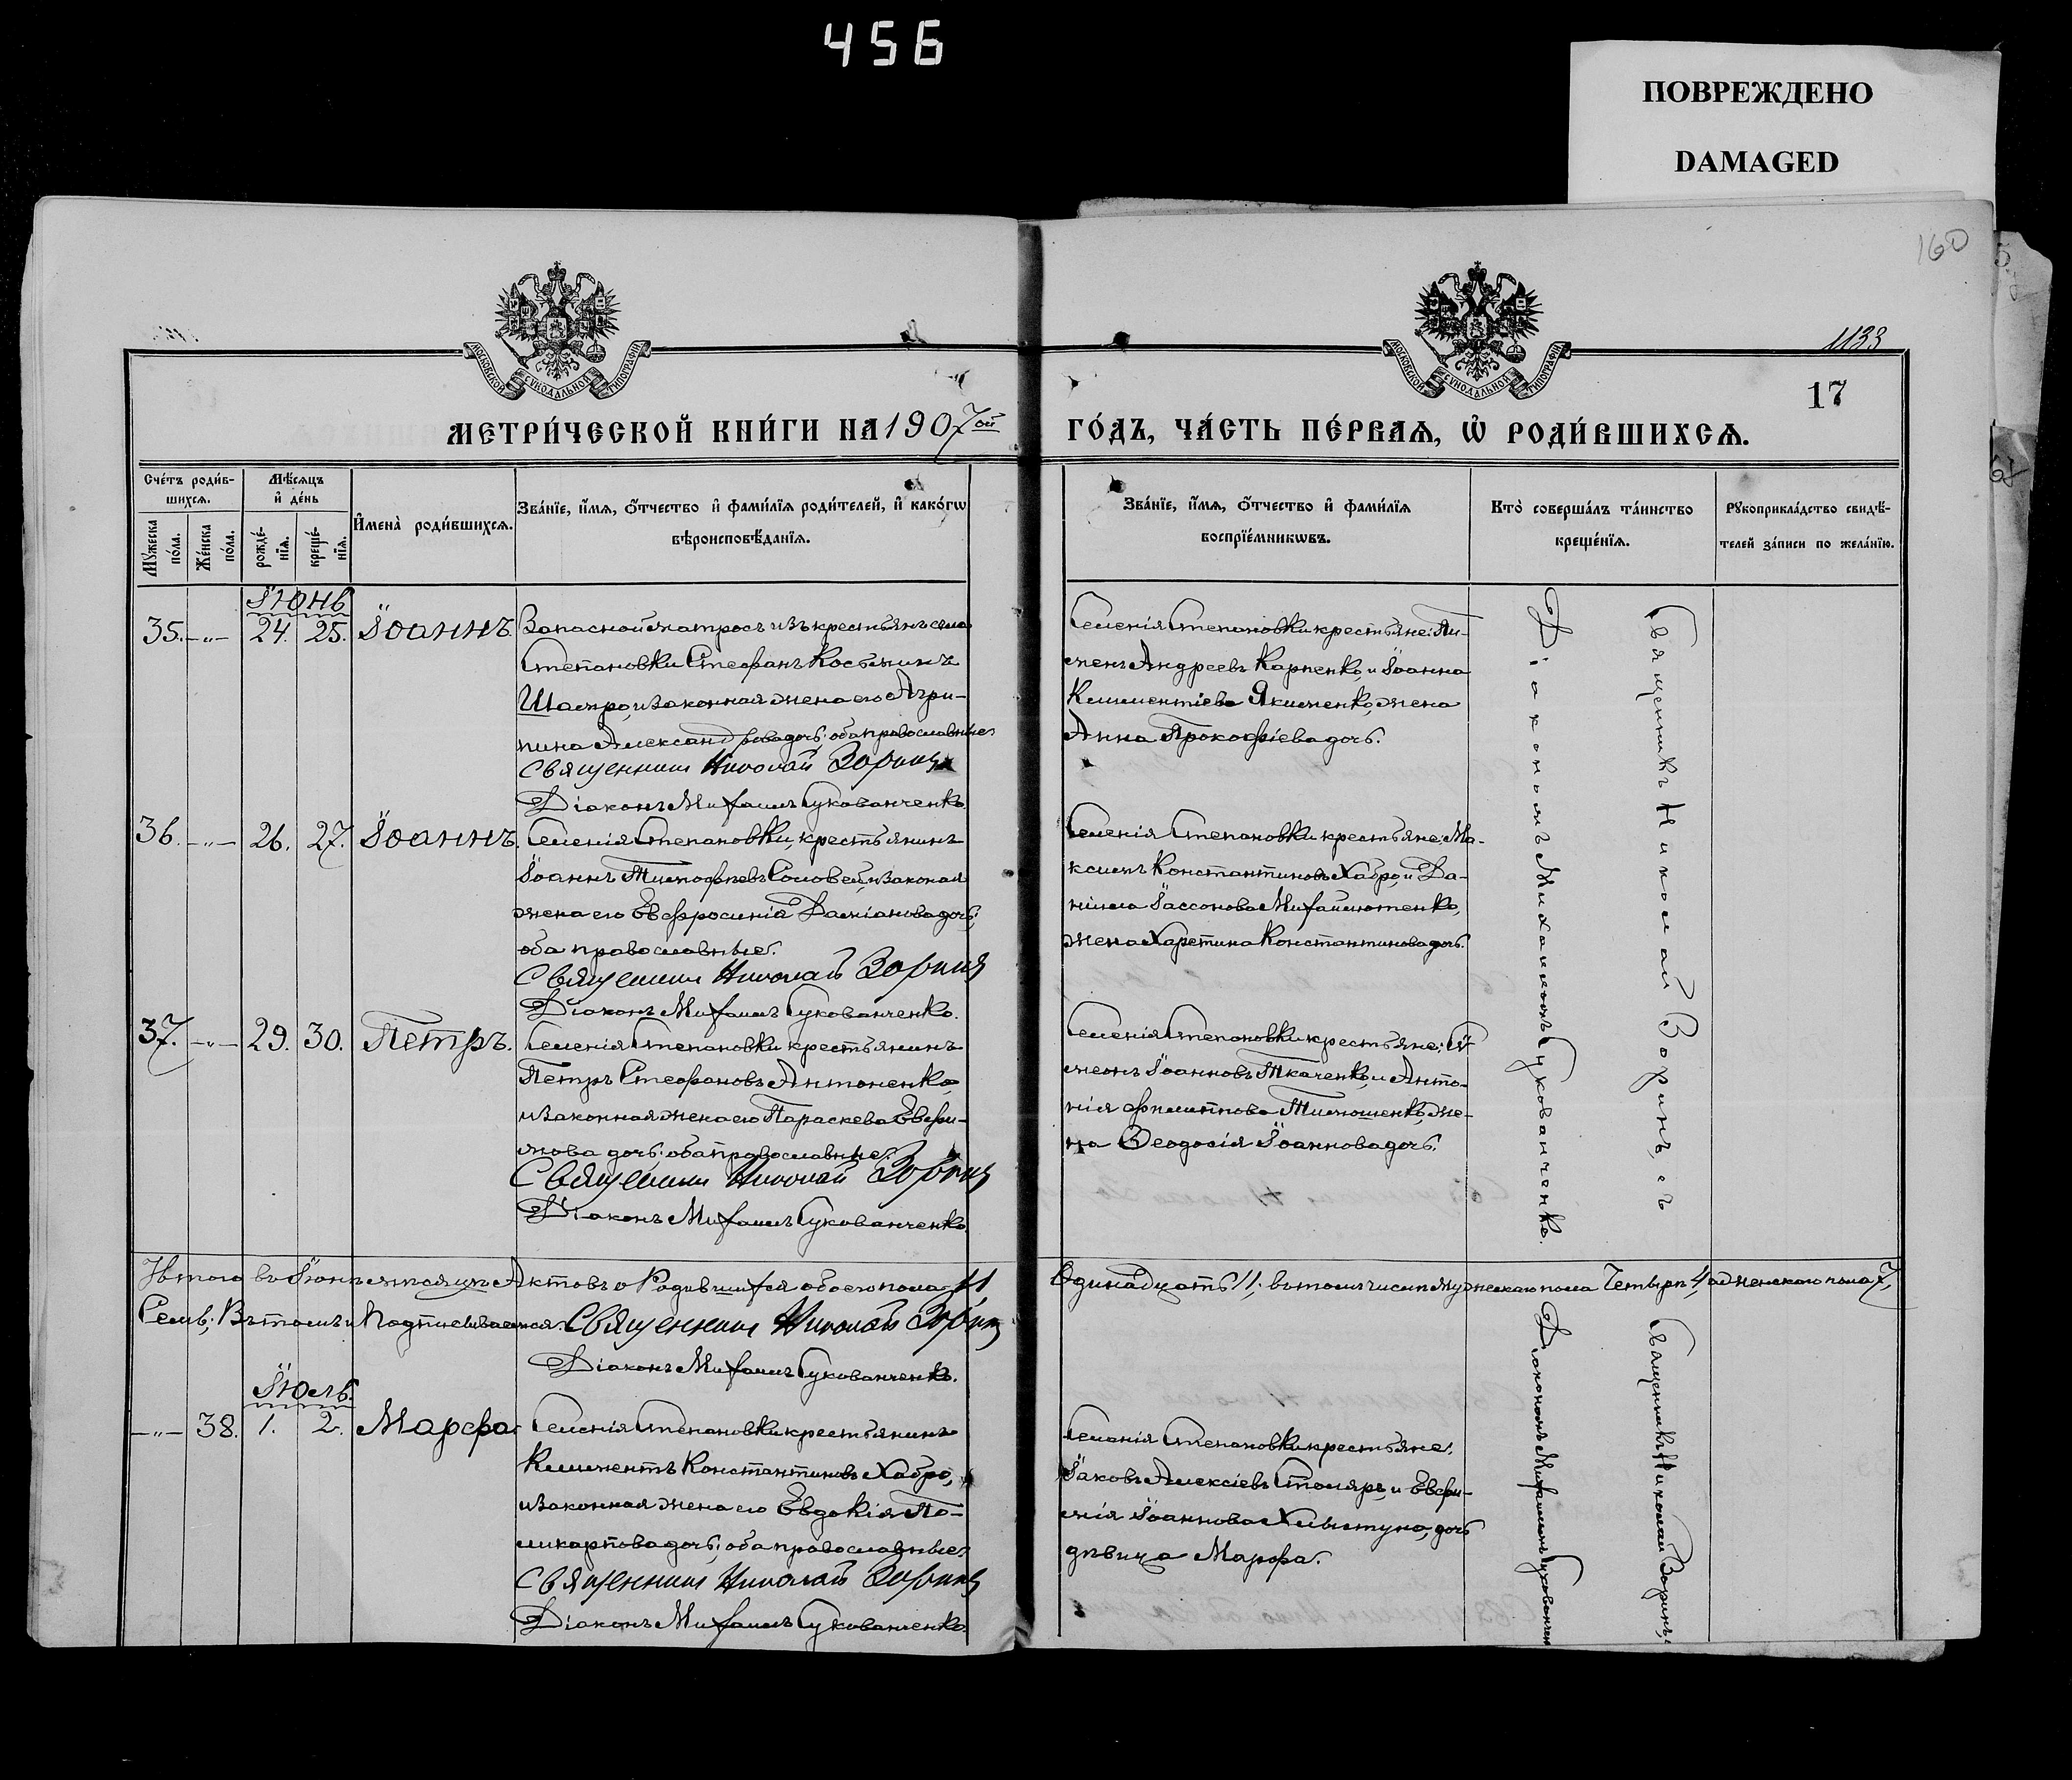 456
ПОВРЕЖДЕНО
DAMAGED
160
1133
17
МОСКОВСКОЙ СѴНОДАЛЬНОЙ ТИПОГРАФІИ
МОСКОВСКОЙ СѴНОДАЛЬНОЙ ТИПОГРАФІИ
МЕТРИ́ЧЕСКОЙ КНИ́ГИ НА 1907ой
ГО́ДЪ, ЧА́СТЬ ПЕ́РВАЯ, Ѡ҆ РОДИ́ВШИХСЯ.
Сче́тъ роди́в-
шихся.
Мѣ́сяцъ
и҆ де́нь
Мꙋ́жеска по́ла.
Же́нска по́ла.
рожде́-
нїя.
креще́-
нїя.
И҆мена̀ роди́вшихся.
Зва́нїе, и҆́мя, ѻ҆́тчество и҆ фами́лїя роди́телей, и҆ како́гѡ
вѣроисповѣ́данїя.
Зва́нїе, и҆́мя, ѻ҆́тчество и҆ фами́лїя
воспрїе́мникѡвъ.
Кто̀ соверша́лъ та́инство
креще́нїя.
Рꙋкоприкла́дство свидѣ́-
телей за́писи по жела́нїю.
Іюнь
35. -„- 24. 25. Іоаннъ.
Запасной матросъ изъ крестьянъ села
Степановки Стефанъ Косьминъ
Шамро, и законная жена его Агри-
пина Александрова дочь: оба православные
Священникъ Николай Зоринъ
Діаконъ Михаилъ Сукованченко.
Селенія Степановки крестьяне: Пи-
менъ Андреевъ Карпенко, и Іоанна
Климентіева Якименко, жена
Анна Прокофіева дочь.
36. -„- 26. 27. Іоаннъ.
Селенія Степановки, крестьянинъ
Іоаннъ Тимофѣевъ Соловей, и законая
жена его Евфросинія Даміанова дочь;
оба православные.
Священникъ Николай Зоринъ
Діаконъ Михаилъ Сукованченко.
Селенія Степановки крестьяне: Ма-
ксимъ Константиновъ Хабро, и Да-
ніила Іассонова Михайлютенко,
жена Харетина Константинова дочь.
37. -„- 29. 30. Петръ.
Селенія Степановки крестьянинъ
Петръ Стефановъ Антоненко,
и законная жена его Параскева Евфи-
мова дочь: оба православные.
Священникъ Николай Зоринъ
Діаконъ Михаилъ Сукованченко.
Селенія Степановки крестьяне: Си-
меонъ Іоанновъ Ткаченко, и Анто-
нія Филиппова Тимошенко, же-
на Феодосія Іоаннова дочь.
Священникъ Николай Зоринъ, съ
Діакономъ Михаиломъ Сукованченко.
Итого въ Іюнѣ мѣсяцѣ Актовъ о Родившихся обоего пола 11
Одинадцать 11; въ томъ числѣ мужескаго пола Четыре 4, а женскаго пола 7,
Семь; Въ томъ и Подписываемся. Священникъ Николай Зоринъ
Діаконъ Михаилъ Сукованченко.
Іюль.
-„- 38. 1. 2. Марфа.
Селенія Степановки крестьянинъ
Климентъ Константиновъ Хабро,
и законная жена его Евдокія По-
ликарпова дочь; оба православные
Священникъ Николай Зоринъ
Діаконъ Михаилъ Сукованченко.
Селенія Степановки крестьяне:
Іаковъ Алексіевъ Столяръ, и Евфи-
мія Іоаннова Хлыстуна, дочь
дѣвица Марфа.
Священникъ Николай Зоринъ,
Діакономъ Михаиломъ Сукованчен